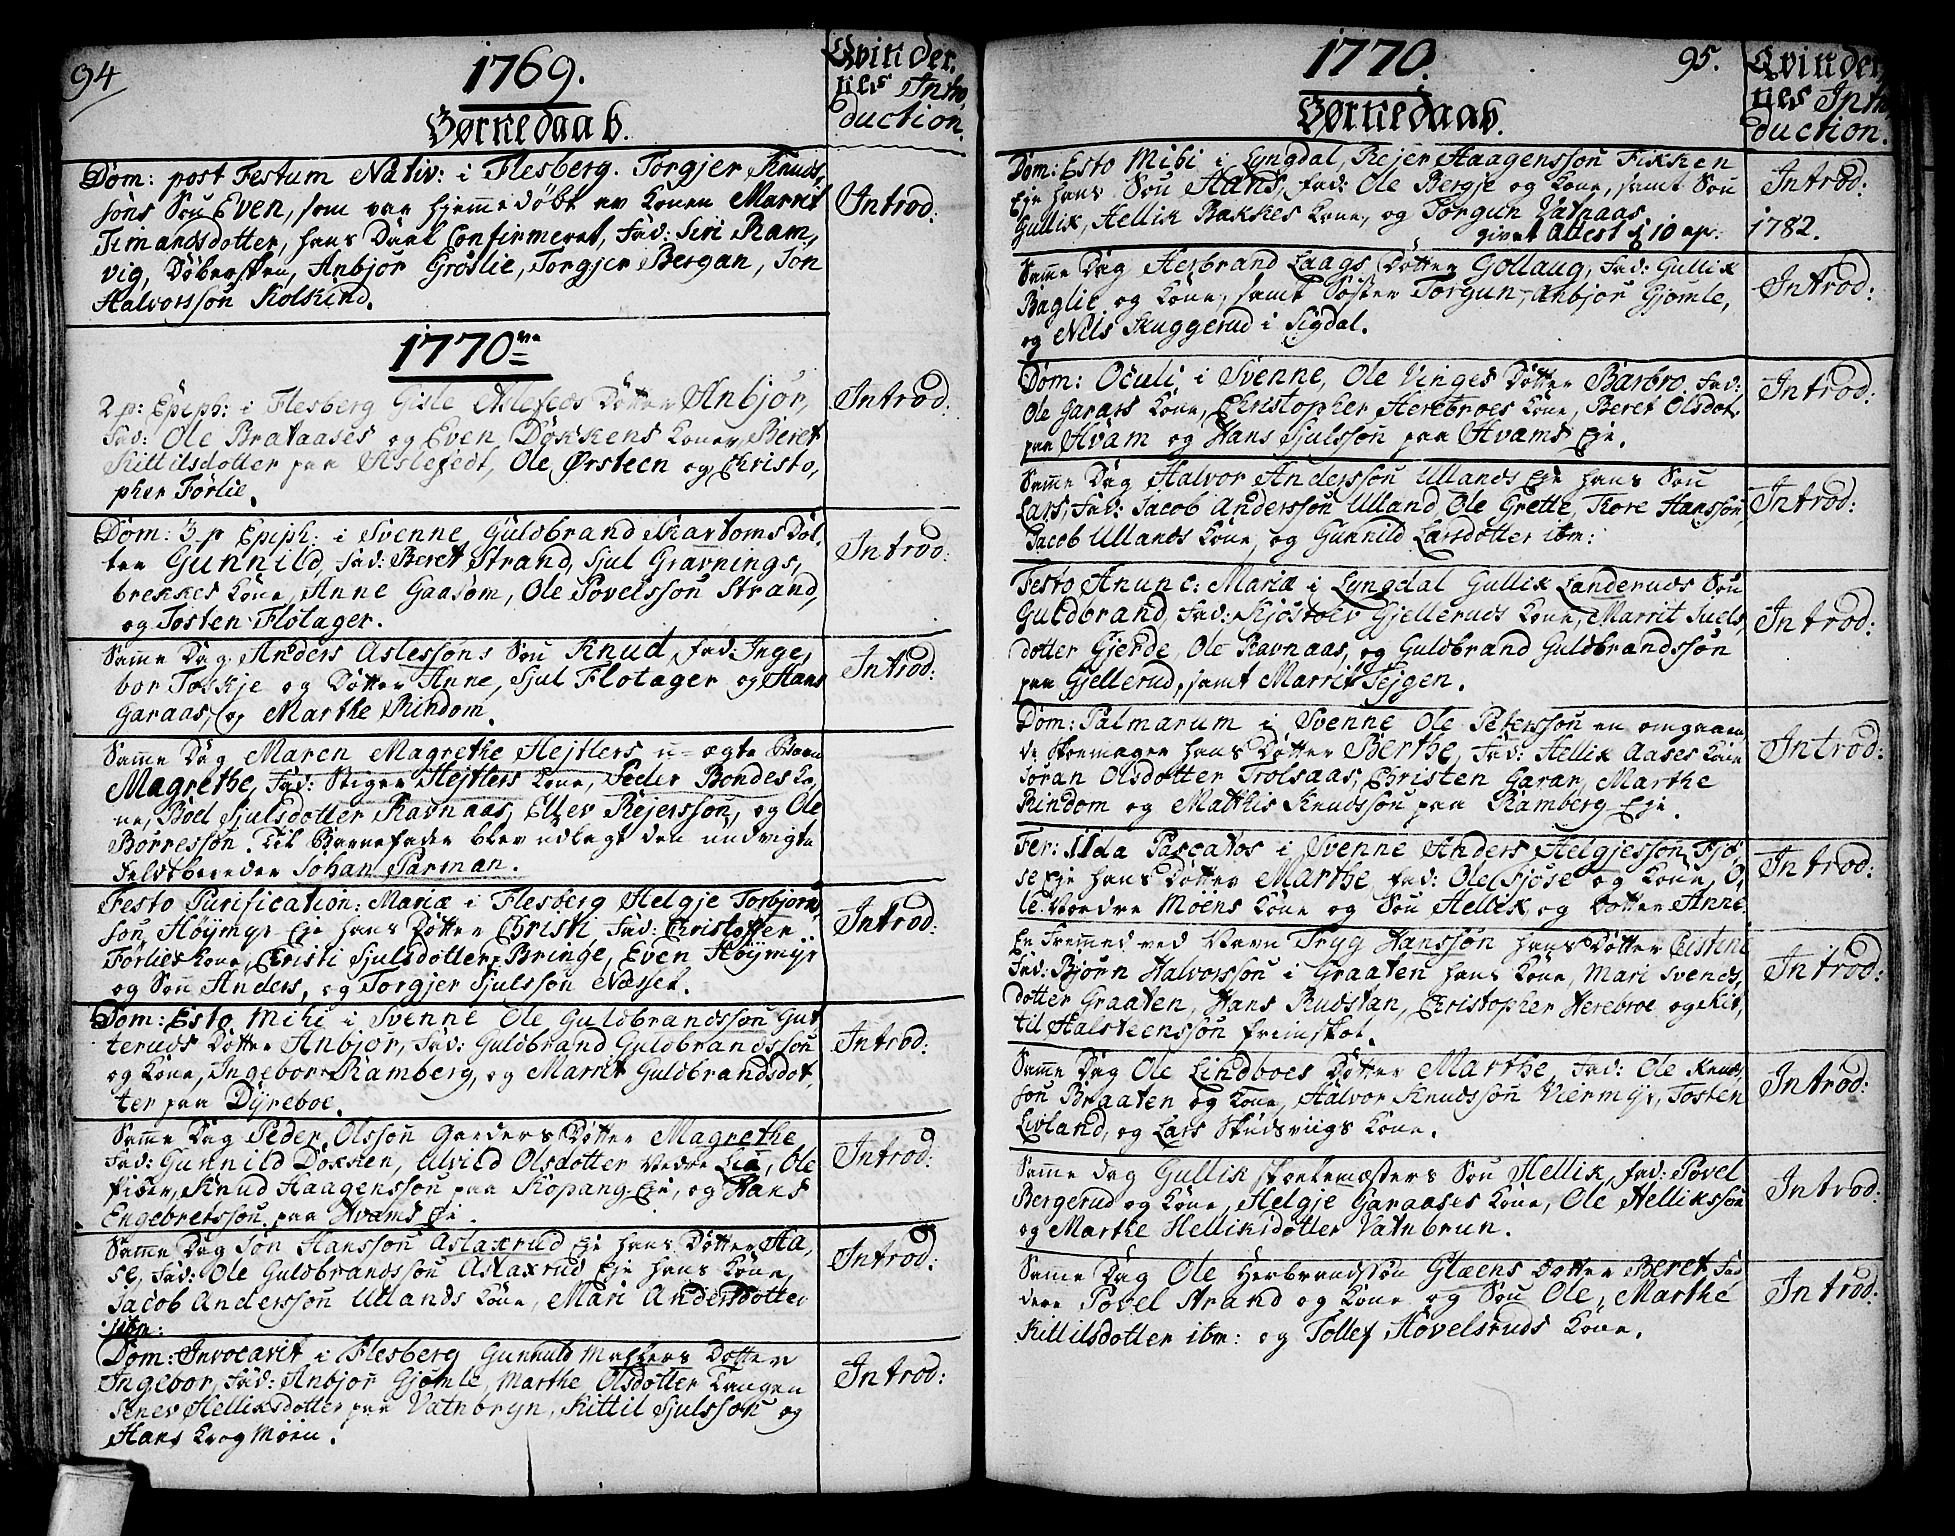 94
1769.
Børnedaab.
Qvinder,
nes Intro,
duction.
Dom: post Festum Nativ: i Flesberg. Torgjer Knuds,
søns Søn Even, som var hjemmedøbt av Konen Marrit
Timandsdotter, hans Daab Confirmeret, Fad: Siri Ram,
vig, Anbjor Grøslie, Torgjer Bergan, Jon
Halvorssøn Kolskind.
Introd:
1770
2 p: Epiph: i Flesberg Gisle Aslefets Dotter Anbjor,
Fad: Ole Brataases og Even Døkkens Koner, Beret
Kittilsdotter paa Aslefedt, Ole Ørsteen og Christo,
pher Førlie.
Introd:
Dom: 3 p Epiph: i Svenne Guldbrand Skartoms Dot,
ter Gunnild, Fad: Beret Strand, Sjul Gravnings,
brekkes Kone, Anne Gaasøm, Ole Povelssøn Strand,
og Tosten Flotager.
Introd:
Samme Dag Anders Aslessøns Søn Knud, Fad: Inge,
bor Toskje og Dotter Anne, Sjul Flotager og Hans
Garaas, og Marthe Rindom.
Introd:
Samme Dag Maren Magrethe Hejtlers u-ægte Barn
Magrethe, Fad: Stiger Hejtlers Kone, Peder Bondes Ko,
ne, Boel Sjulsdotter Ravnaas, Ellev Rejerssøn, og Ole
Børressøn. Til Barnefader blev udlagt den undvigte
Feldtbereder Johan Parman.
Festo Purification: Mariæ i Flesberg Helgje Torbjørn,
søn Høymyr Eje hans Dotter Christi Fad: Christoffer
Førlies Kone, Christi Sjulsdotter Bringe, Even Høymyr
og Søn Anders, og Torgjer Sjulssøn Næsset.
Introd:
Dom: Esto Mihi i Svenne Ole Guldbrandssøn Gut
teruds Dotter Anbjor, Fad: Guldbrand Guldbrandssøn
og Kone, Ingebor Ramberg, og Marrit Guldbrandsdot,
ter paa Dyreboe.
Introd:
Samme Dag Peder Olssøn Garders Dotter Magrethe
Fad: Gunnild Døkken, Ulvild Olsdotter Vedre Lia, Ole
Knud Haagenssøn paa Kopang Eje, og Hans
Engebretssøn paa Hvams Eje.
Introd:
Samme Dag Jon Hanssøn Aslaxrud Eje hans Dotter Aa,
se, Fad: Ole Guldbrandssøn Aslaxrud Eje hans Kone,
Jacob Anderssøn Ullands Kone, Mari Andersdotter
ibm:
Introd:
Dom: Invocavit i Flesberg Gunnuld Dotter
Ingebor, Fad: Anbjor Gjømle, Marthe Olsdotter Langen
Hellixsdotter paa Vatnbryn, Kittil Sjulssøn og
Hans Krog Moen.
Introd:
1770.
95.
Børnedaab.
Qvinder,
nes Intro
duction.
Dom: Esto Mihi i Lyngdal, Rejer Haagenssøn Fikken
Eje hans Søn Hans, Fad: Ole Bergje og Kone, samt Søn
Gullik, Hellik Bakkes Kone, og Torgun Vatnaas
givet Attest d 10 ap: 1782.
Introd:
Samme Dag Herbrand Laags Dotter Gollaug, Fad: Gullik
Baglie og Kone, samt Søster Torgun, Anbjor Gjømle,
og Nils Skuggerud i Sigdal.
Introd:
Dom: Oculi i Svenne, Ole Vinges Dotter Barbro, Fad:
Ole Garaas Kone, Christopher Herebroes Kone, Beret Olsdot.
paa Hvam og Hans Sjulssøn paa Hvams Eje.
Introd:
Samme Dag Halvor Anderssøn Ullands Eje hans Søn
Lars, Fad: Jacob Anderssøn Ulland, Ole Grette, Tore Hanssøn,
Jacob Ullands Kone, og Gunnild Larsdotter ibm:
Introd:
Festo Anunc: Mariæ i Lyngdal Gullik Landeruds Søn
Guldbrand, Fad: Kjøstolv Gjelleruds Kone, Marrit Juels,
dotter Gjerde, Ole Ravnaas, og Guldbrand Guldbrandssøn
paa Gjellerud, samt Marrit Tejgen.
Introd:
Dom: Palmarum i Svenne Ole Peterssøn en omgaaen
de Skomager hans Dotter Berthe, Fad: Hellik Aases Kone
Joran Olsdotter Trolsaas, Christen Garar, Marthe
Rindom og Matthis Knudssøn paa Ramberg Eje.
Introd:
Fer: IIda Pascatos i Svenne Anders Helgjessøn Fjø
se Eje hans Dotter Marthe, Fad: Ole Fjøse og Kone, O,
le Vordre Moens Kone og Søn Hellik og Dotter Anne.
Introd:
En Fremmed ved Navn Tryg Hanssøn hans Dotter Cistine
Fad: Bjørn Halvorssøn i Graaten hans Kone, Mari Svends,
dotter Graaten, Hans Rudstan, Christopher Herebroe og Kit,
til Halsteenssøn Freimskot.
Introd:
Samme Dag Ole Lindboes Dotter Marthe, Fad: Ole Knud,
søn Braaten og Kone, Halvor Knudssøn Viermyr, Tosten
Livland, og Lars Skudsviigs Kone.
Introd:
Samme dag Gullik Skolemæsters Søn Hellik, Fad: Povel
Bergerud og Kone, Helgje Garaases Kone, Ole Hellikssøn
og Marthe Helliksdotter Vatnbrun.
Introd:
Samme Dag Ole Herbrandssøn Glæens Dotter Beret Fad
dere Povel Strand og Kone og Søn Ole, Marthe
Kittilsdotter ibm: og Tollef Hovelsruds Kone.
Introd: